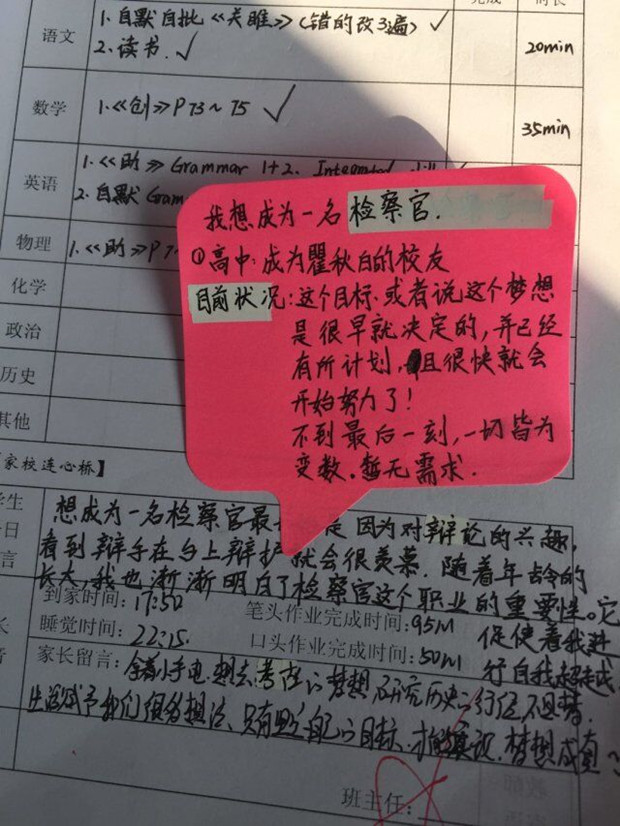 完成
时长
语文
1.自默自批《关雎》(错的改3遍) ✓
2.读书. ✓
20min
数学
1.《创》P73~75 ✓
35min
英语
1.《助》Grammar 1+2、Integrated
2.自默Gram
物理
1.《助》P7
化学
政治
历史
其他
我想成为一名检察官.
①高中:成为瞿秋白的校友
目前状况:这个目标、或者说这个梦想
是很早就决定的,并已经
有所计划,且很快就会
开始努力了!
不到最后一刻,一切皆为
变数.暂无需求.
家校连心桥】
想成为一名检察官最 是因为对辩论的兴趣,
看到辩手在台上辩护就会很羡慕.随着年龄的
长大,我也渐渐明白了检察官这个职业的重要性。它
促使着我进
行自我超越.
到家时间:17:50
笔头作业完成时间:95M
睡觉时间:22:15.
口头作业完成时间:50M
家长留言:拿着小手电,想去考古的梦想,研究历史的
生活赋予我们很多想法、只有 自己的目标、才能实现.梦想成真~
班主任: